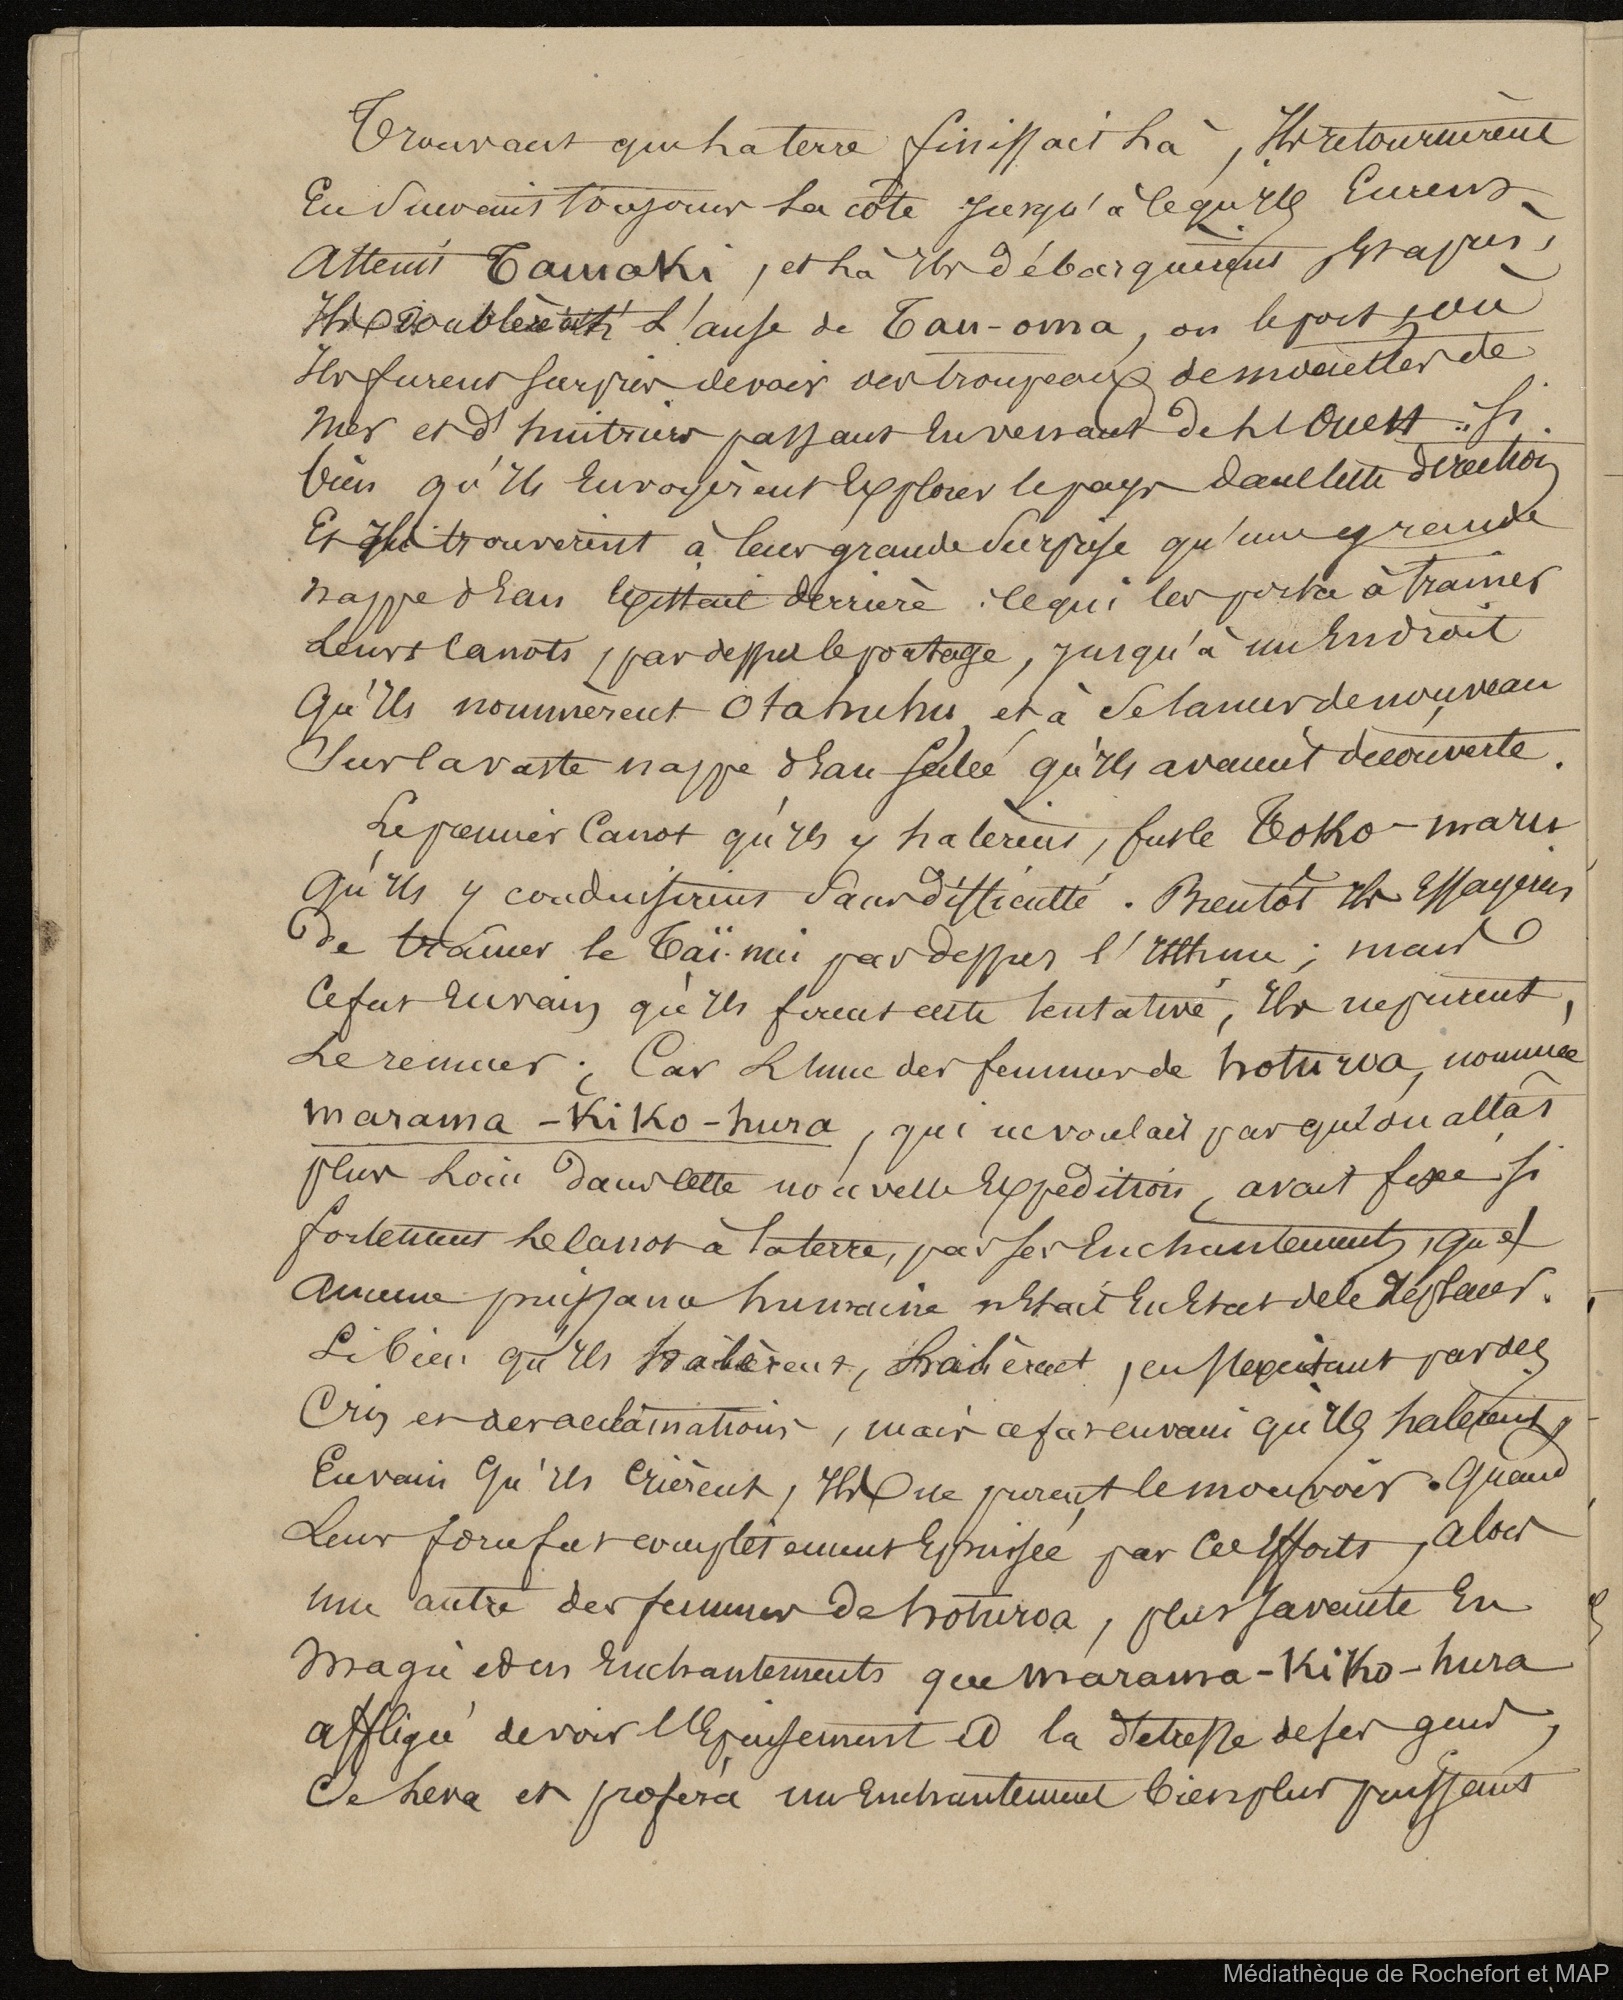 Trouvant que la terre finissait là, Ils retournèrent
En suivant toujours la côte jusqu'à ce qu'ils Eurent
Atteint Tamaki, et là Ils débarquèrent Et après,
Ils doublèrent L'anse de Tau-oma, ou le port, où
Ils furent surpris de voir des troupeaux de mouettes de
Mer et d'huitriers passant En venant de L'Ouest : si
bien qu'Ils Envoyèrent Explorer le pays dans cette direction
Et Ils trouvèrent à leur grande Surprise qu'une grande
nappe d'Eau Existait derrière : ce qui les porta à trainer
Leurs Canots, par dessus le portage, jusqu'à un Endroit
Qu'Ils nommèrent Otahuhu et à se lancer de nouveau
Sur la vaste nappe d'Eau salée qu'Ils avaient découverte.
Le premier Canot qu'Ils y halèrent, fut le Tokko-maru
Qu'Ils y conduisirent Sans difficulté. Bientôt Ils Essayèrent
De traîner le Taï-nui par dessus l'Isthme ; mais
Ce fut En vain qu'Ils firent cette tentative, Ils ne purent,
Le remuer ; Car L'une des femmes de hoturoa, nommée
marama-KiKo-hura, qui ne voulait pas qu'on allât
plus Loin Dans cette nouvelle Expédition, avait fixé si
fortement Le Canot à la terre, par ses Enchantements, que
Aucune puissance humaine n'Etait En Etat de le déplacer.
Si bien qu'Ils halèrent, halèrent, en s'excitant par des
Cris et des acclamations, mais ce fut en vain qu'Ils halèrent,
En vain Qu'Ils Crièrent, Ils ne purent le mouvoir. Quand
Leur force fut complètement Epuisée par Ces Efforts, alors
une autre des femmes De hoturoa, plus savante En
Magie et en Enchantements que marama-KiKo-hura
affligée de voir l'Epuisement et la détresse de ses gens,
Se Leva et proféra un Enchantement bien plus puissant
Médiathèque de Rochefort et MAP